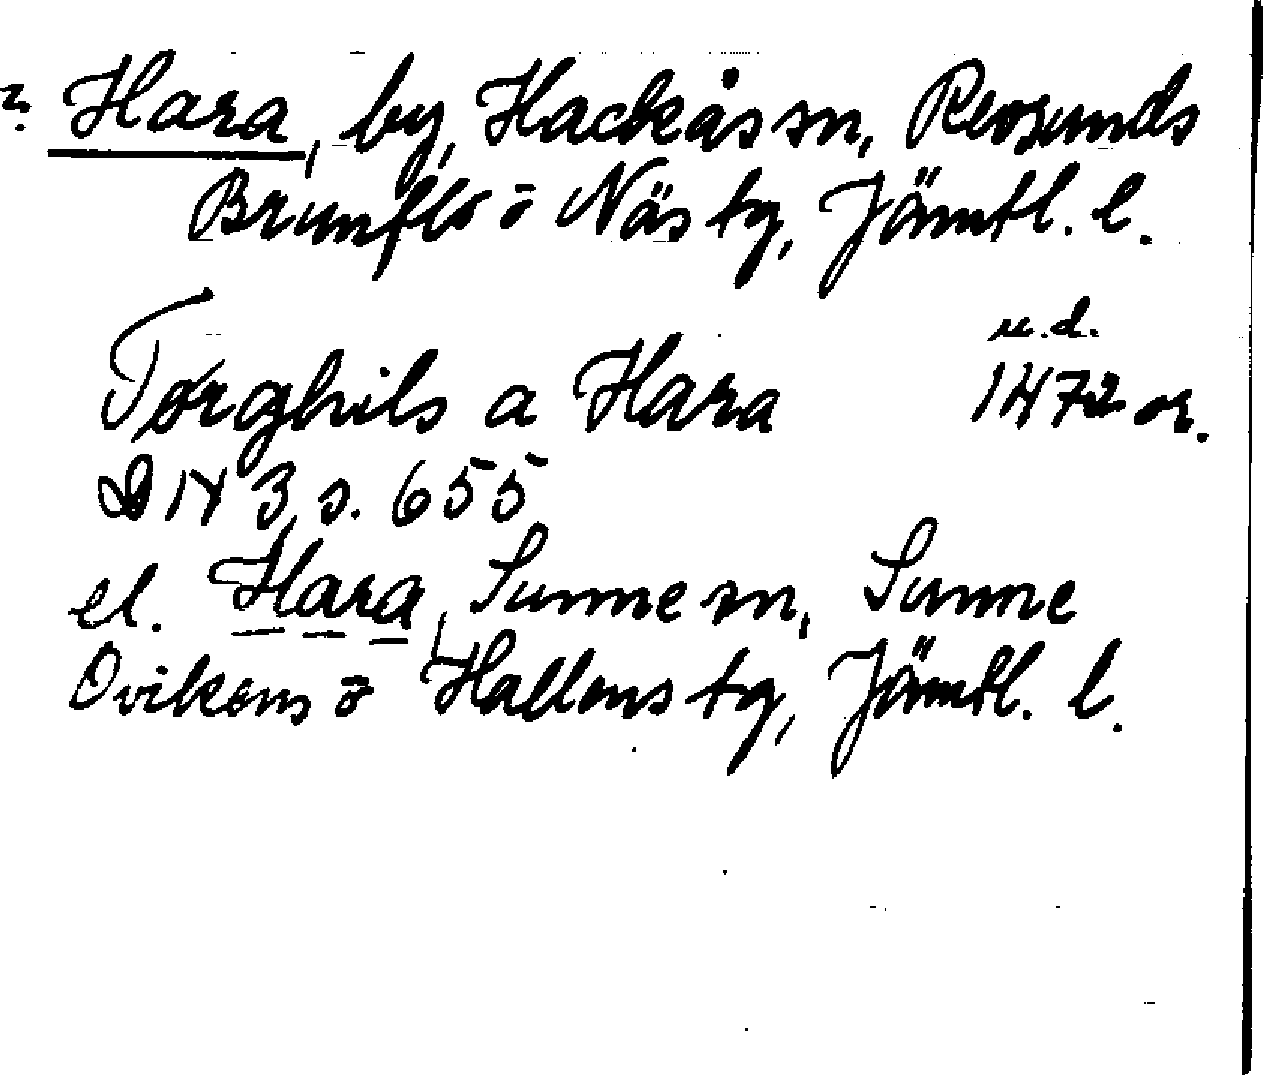 ? Hara, by, Hackås sn, Revsunds
Brunflo o Näs tg, Jämtl. l.
u.d.
Torghils a Hara 1472 or.
DN 3 s. 655
el. Hara, Sunne sn, Sunne
Ovikens o Hallens tg, Jämtl. l.